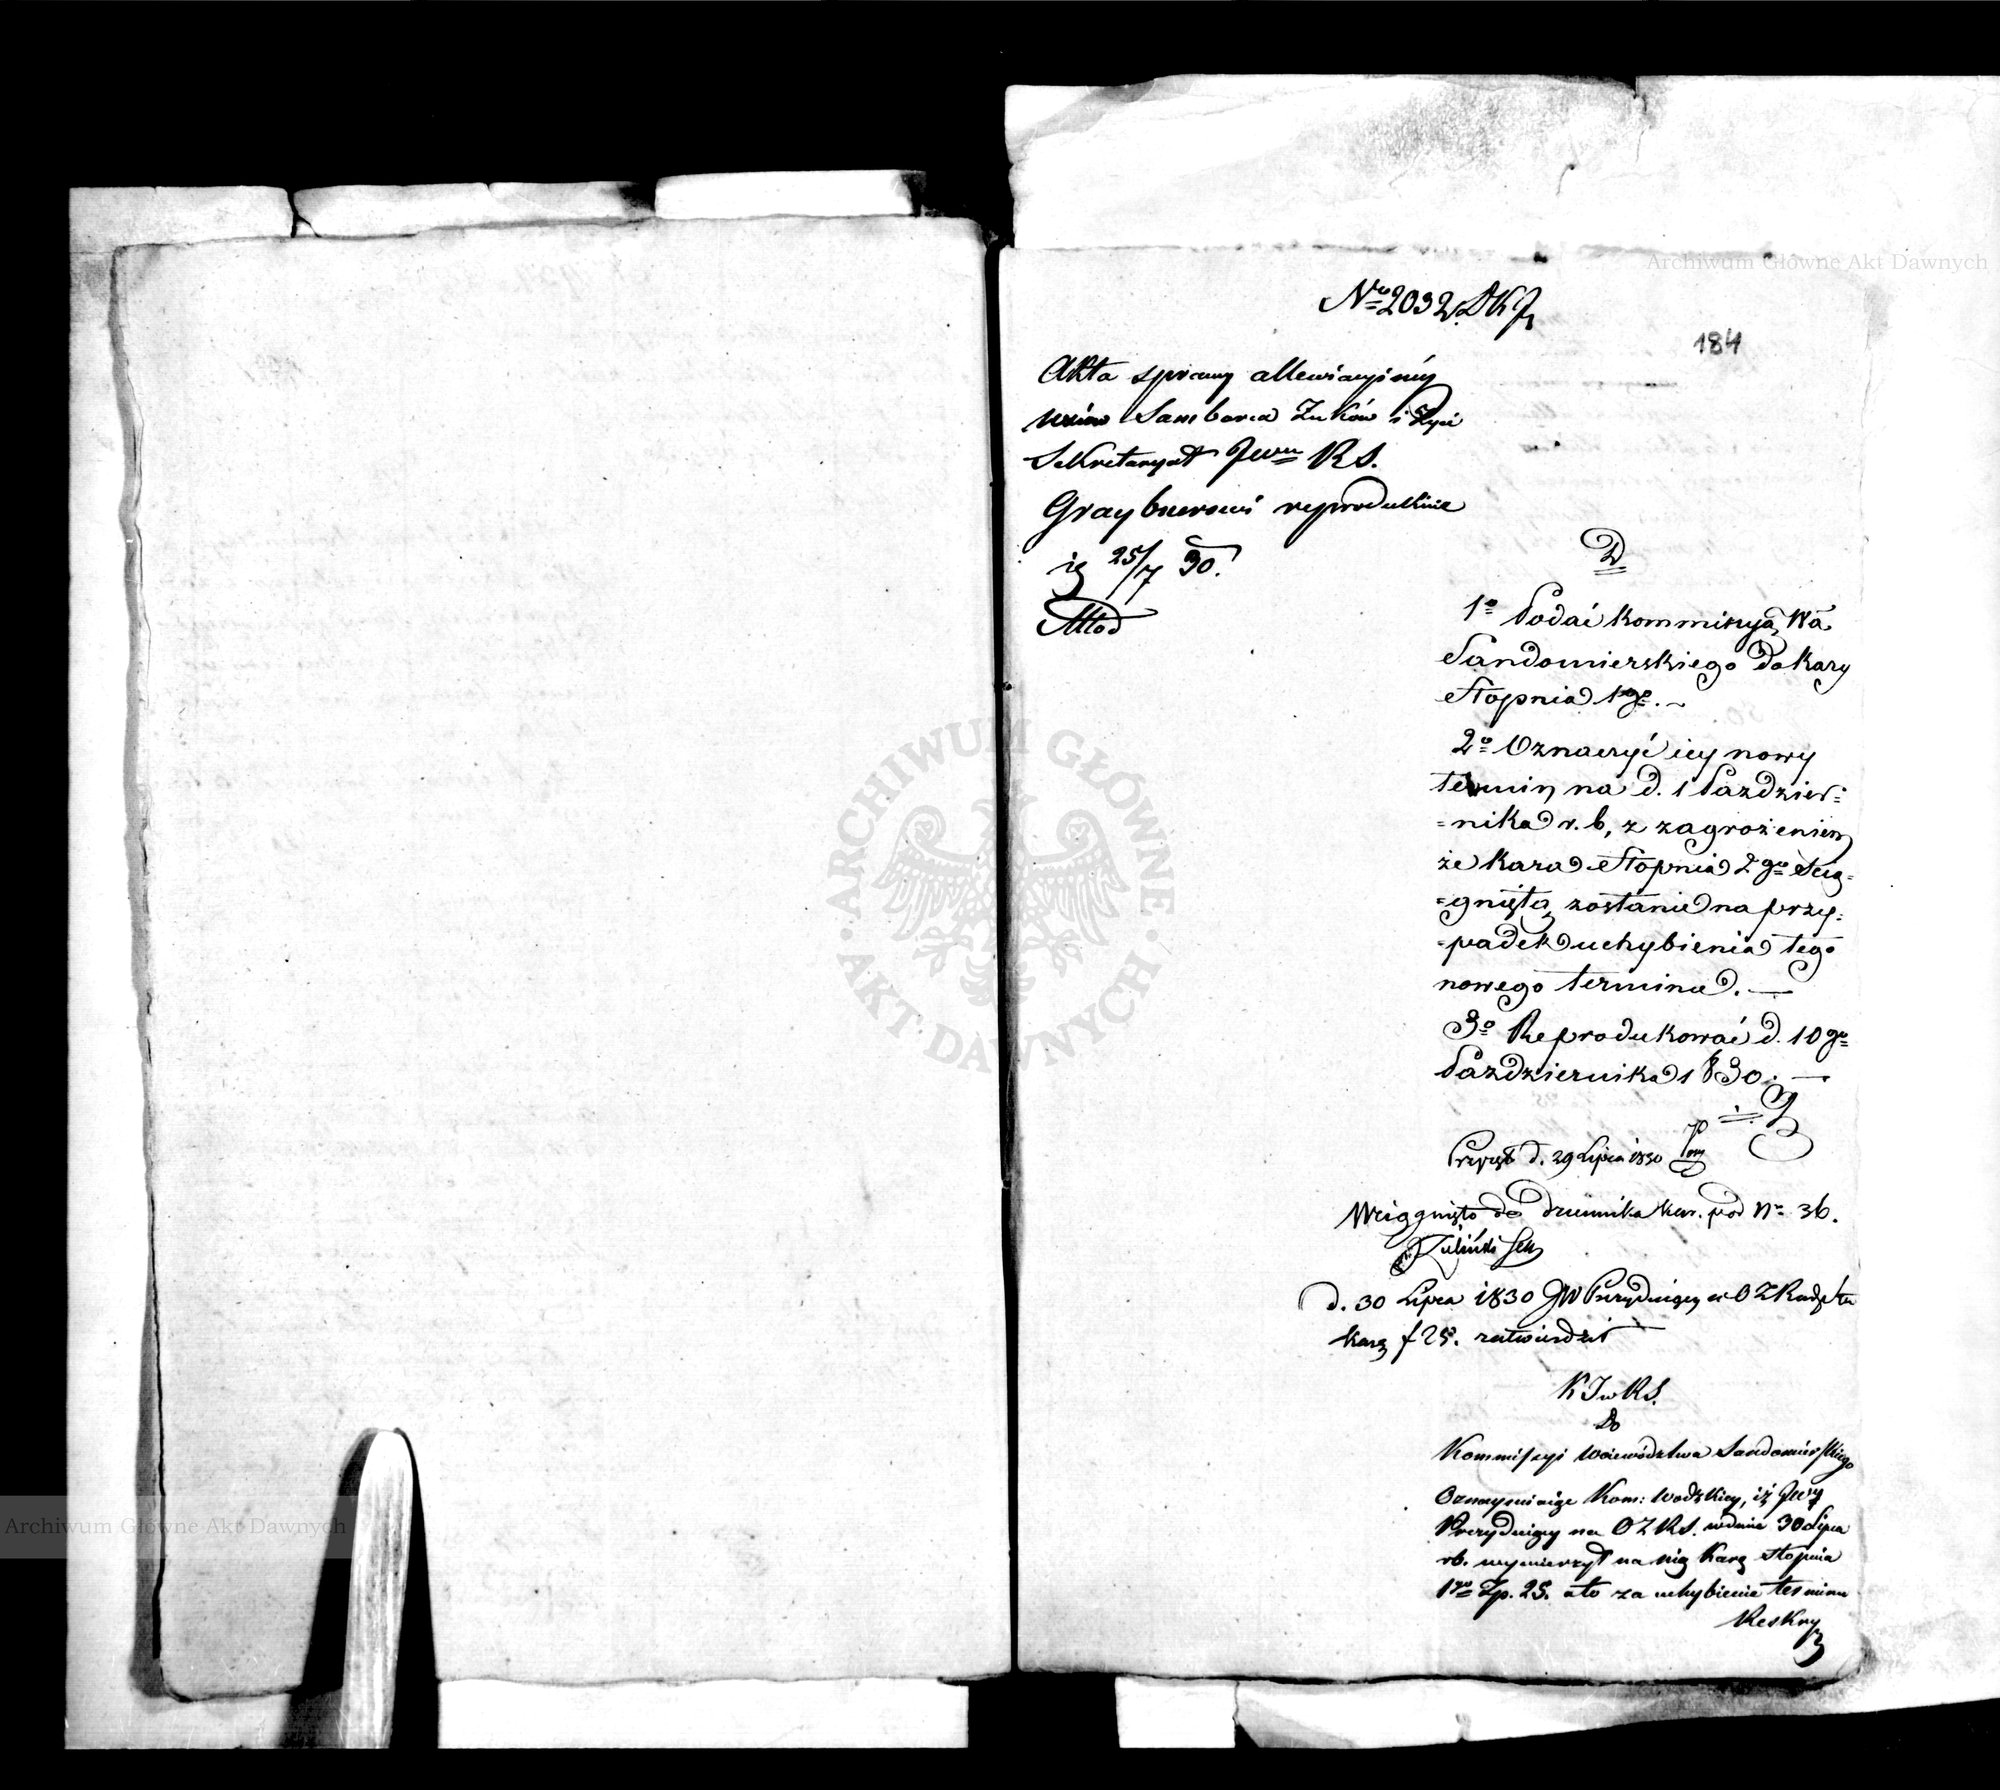 Archiwum Główne Akt Dawnych
Nro 2032 DKJ
184
Akta sprawy allewiacyiney
wsiów Sambora Żuków i
Sekretaryat Jenu RS.
Graybnerowi reprodukuie
ię 25/7 30.
D
1o Podać kommissyą Wa
Sandomierskiego do kary
Stopnia 1go. ~
2o Oznaczyć iey nowy
termin na d. 1 Paździer=
=nika r. b, z zagrożeniem
że kara Stopnia 2go Scią=
=gniętą zostanie na przy=
=padek uchybienia tego
nowego terminu. —
3o Reprodukować d. 10go
Października 1830. —
Przyięto d. 29 Lipca 1830
Wciągnięto do dziennika kar. pod No 36.
d. 30 Lipca 1830 JW Prezyduiący w OZ
karę f 25. zatwierdził
K J w RS.
Do
Kommissyi Woiewództwa Sandomierskiego
Oznaymiaiąc Kom: Wodzkiey, iż
Prezyduiący na OZ RS. w dniu 30 Lipca
rb. wymierzył na nię karę Stopnia
1go Zp. 25. a to za uchybienie terminu
Reskry
ARCHIWUM GŁÓWNE
AKT DAWNYCH
Archiwum Główne Akt Dawnych